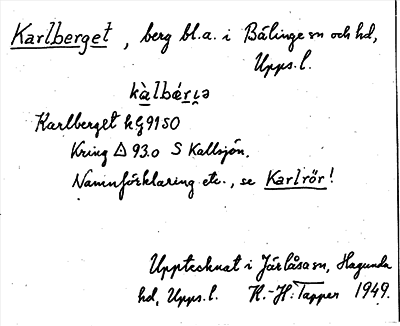 Karlberget, berg bl.a. i Bälinge sn och hd,
Upps. l.
Karlberget kg 9150
Kring △ 93.0 S Kallsjön.
Namnförklaring etc., se Karlrör!
Upptecknat i Järlåsa sn, Hagunda
hd, Upps. l. H.-H. Tapper 1949.